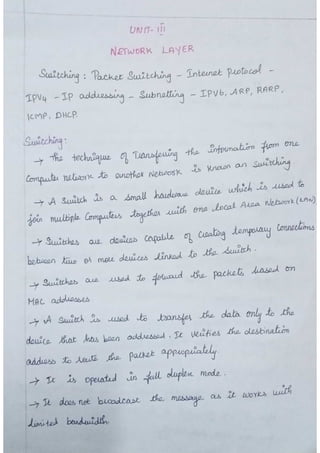 UNIT-III
NETWORK LAYER
Switching : Packet Switching - Internet protocol -
IPV4 - IP addressing - Subnetting - IPV6, ARP, RARP,
ICMP, DHCP.
Switching -
→ The technique of Transferring the information from one
Computer network to another Network is known as Switching
→ A Switch is a small hardware device which is used to
join multiple Computers together with one local Area Network (LAN)
→ Switches are devices capable of Creating temporary Connections
between two or more devices linked to the Switch.
→ Switches are used to forward the packets based on
MAC addresses
→ A Switch is used to transfer the data only to the
device that has been addressed. It verifies the destination
address to route the packet appropriately.
→ It is operated in full duplex mode.
→ It does not broadcast the message as it works with
limited bandwidth